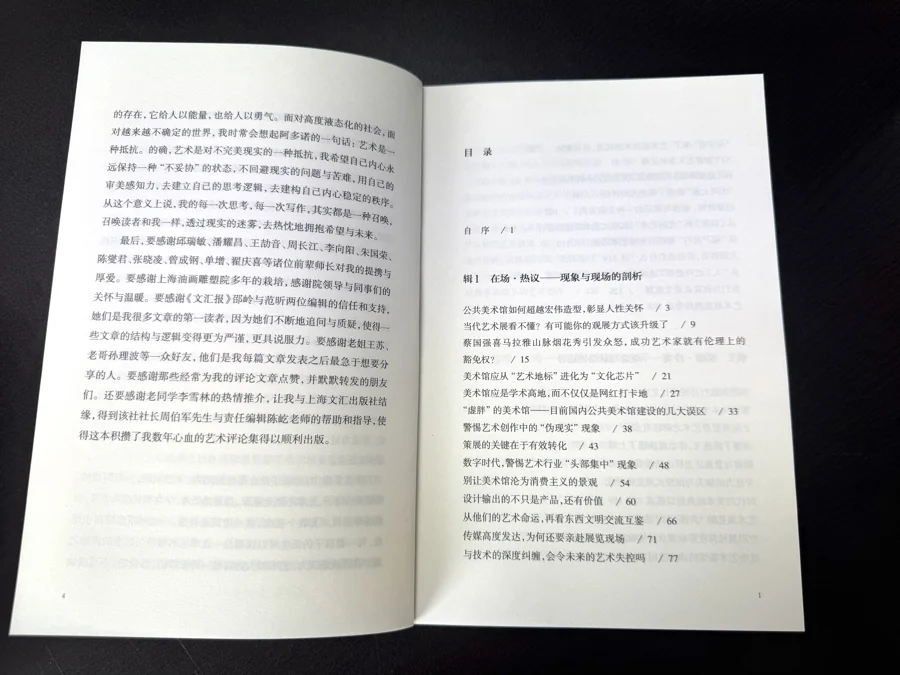 的存在，它给人以能量，也给人以勇气。面对高度液态化的社会，面
对越来越不确定的世界，我时常会想起阿多诺的一句话：艺术是一
种抵抗。的确，艺术是对不完美现实的一种抵抗，我希望自己内心永
远保持一种“不妥协”的状态，不回避现实的问题与苦难，用自己的
审美感知力，去建立自己的思考逻辑，去建构自己内心稳定的秩序。
从这个意义上说，我的每一次思考，每一次写作，其实都是一种召唤，
召唤读者和我一样，透过现实的迷雾，去热忱地拥抱希望与未来。
最后，要感谢邱瑞敏、潘耀昌、王劼音、周长江、李向阳、朱国荣、
陈燮君、张晓凌、曾成钢、单增、翟庆喜等诸位前辈师长对我的提携与
厚爱。要感谢上海油画雕塑院多年的栽培，感谢院领导与同事们的
关怀与温暖。要感谢《文汇报》邵岭与范昕两位编辑的信任和支持，
她们是我很多文章的第一读者，因为她们不断地追问与质疑，使得一
些文章的结构与逻辑变得更为严谨，更具说服力。要感谢老姐王苏、
老哥孙理波等一众好友，他们是我每篇文章发表之后最急于想要分
享的人。要感谢那些经常为我的评论文章点赞，并默默转发的朋友
们。还要感谢老同学李雪林的热情推介，让我与上海文汇出版社结
缘，得到该社社长周伯军先生与责任编辑陈屹老师的帮助和指导，使
得这本积攒了我数年心血的艺术评论集得以顺利出版。
4
目 录
自 序 / 1
辑1 在场·热议——现象与现场的剖析
公共美术馆如何超越宏伟造型，彰显人性关怀 / 3
当代艺术展看不懂？有可能你的观展方式该升级了 / 9
蔡国强喜马拉雅山脉烟花秀引发众怒，成功艺术家就有伦理上的
豁免权？ / 15
美术馆应从“艺术地标”进化为“文化芯片” / 21
美术馆应是学术高地，而不仅仅是网红打卡地 / 27
“虚胖”的美术馆——目前国内公共美术馆建设的几大误区 / 33
警惕艺术创作中的“伪现实”现象 / 38
策展的关键在于有效转化 / 43
数字时代，警惕艺术行业“头部集中”现象 / 48
别让美术馆沦为消费主义的景观 / 54
设计输出的不只是产品，还有价值 / 60
从他们的艺术命运，再看东西文明交流互鉴 / 66
传媒高度发达，为何还要亲赴展览现场 / 71
与技术的深度纠缠，会令未来的艺术失控吗 / 77
1